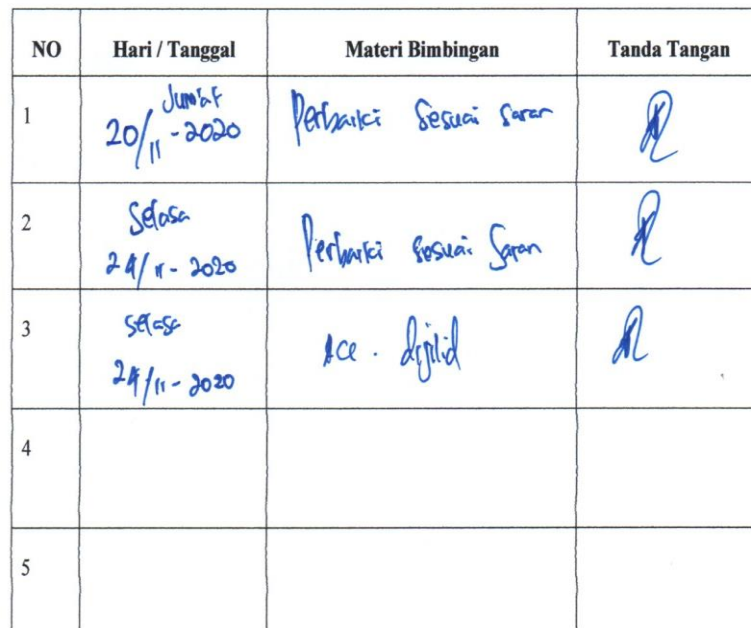 NO Hari / Tanggal Materi Bimbingan Tanda Tangan
1 Jum'at
20/11-2020 Perbaiki Sesuai Saran
2 Selasa
24/11-2020 Perbaiki Sesuai Saran
3 Selasa
24/11-2020 Acc. dijilid
4
5